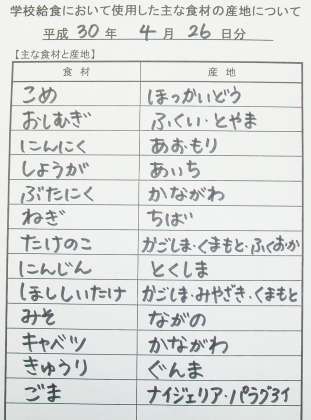 学校給食において使用した主な食材の産地について
平成 30 年 4 月 26 日分
【主な食材と産地】
食 材 産 地
こめ ほっかいどう
おしむぎ ふくい・とやま
にんにく あおもり
しょうが あいち
ぶたにく かながわ
ねぎ ちばい
たけのこ かごしま・くまもと・ふくおか
にんじん とくしま
ほししいたけ かごしま・みやざき・くまもと
みそ ながの
キャベツ かながわ
きゅうり ぐんま
ごま ナイジェリア・パラグアイ